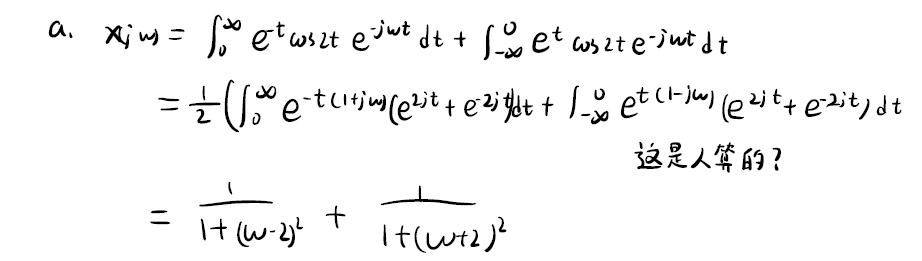 a. X(jω) = ∫₀^∞ e^{-t} cos2t e^{-jωt} dt + ∫_{-∞}^0 e^t cos2t e^{-jωt} dt
= 1/2 (∫₀^∞ e^{-t(1+jω)} (e^{2jt} + e^{-2jt}) dt + ∫_{-∞}^0 e^{t(1-jω)} (e^{2jt} + e^{-2jt}) dt
这是人算的？
= 1/(1+(ω-2)²) + 1/(1+(ω+2)²)